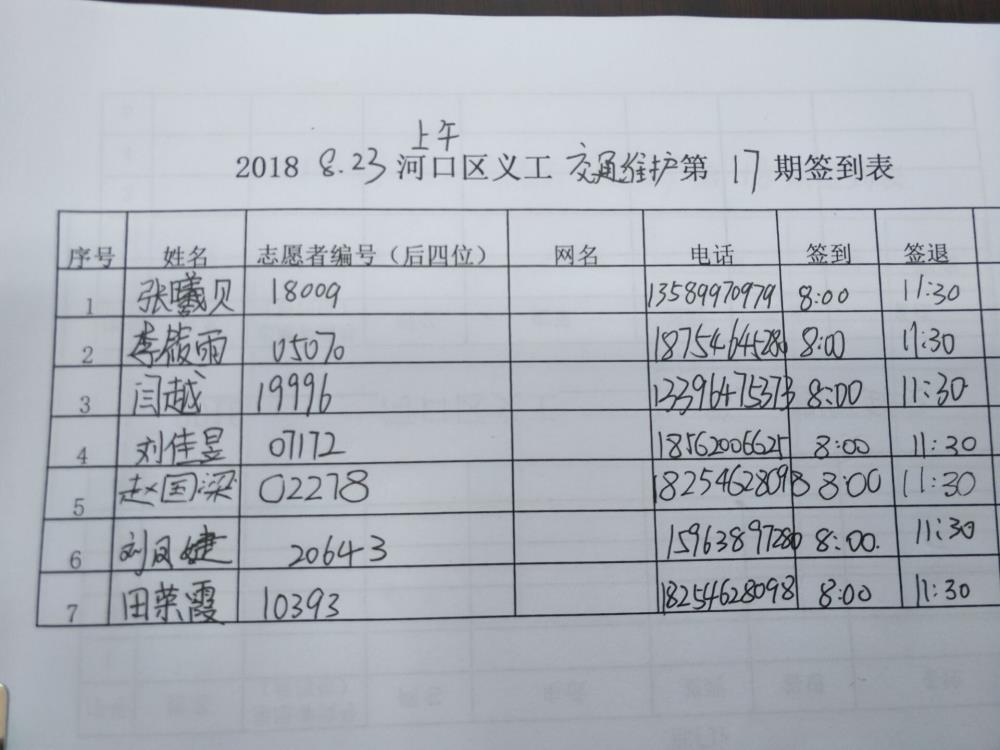 上午
2018 8.23 河口区义工 交通维护第 17 期签到表
序号 姓名 志愿者编号（后四位） 网名 电话 签到 签退
1 张曦贝 18009 13589970979 8:00 11:30
2 李筱雨 05070 18754645280 8:00 11:30
3 闫越 19996 13396475373 8:00 11:30
4 刘佳昱 07172 18562006625 8:00 11:30
5 赵国深 02278 18254628098 8:00 11:30
6 刘凤婕 20643 15963897280 8:00. 11:30
7 田荣霞 10393 18254628098 8:00 11:30